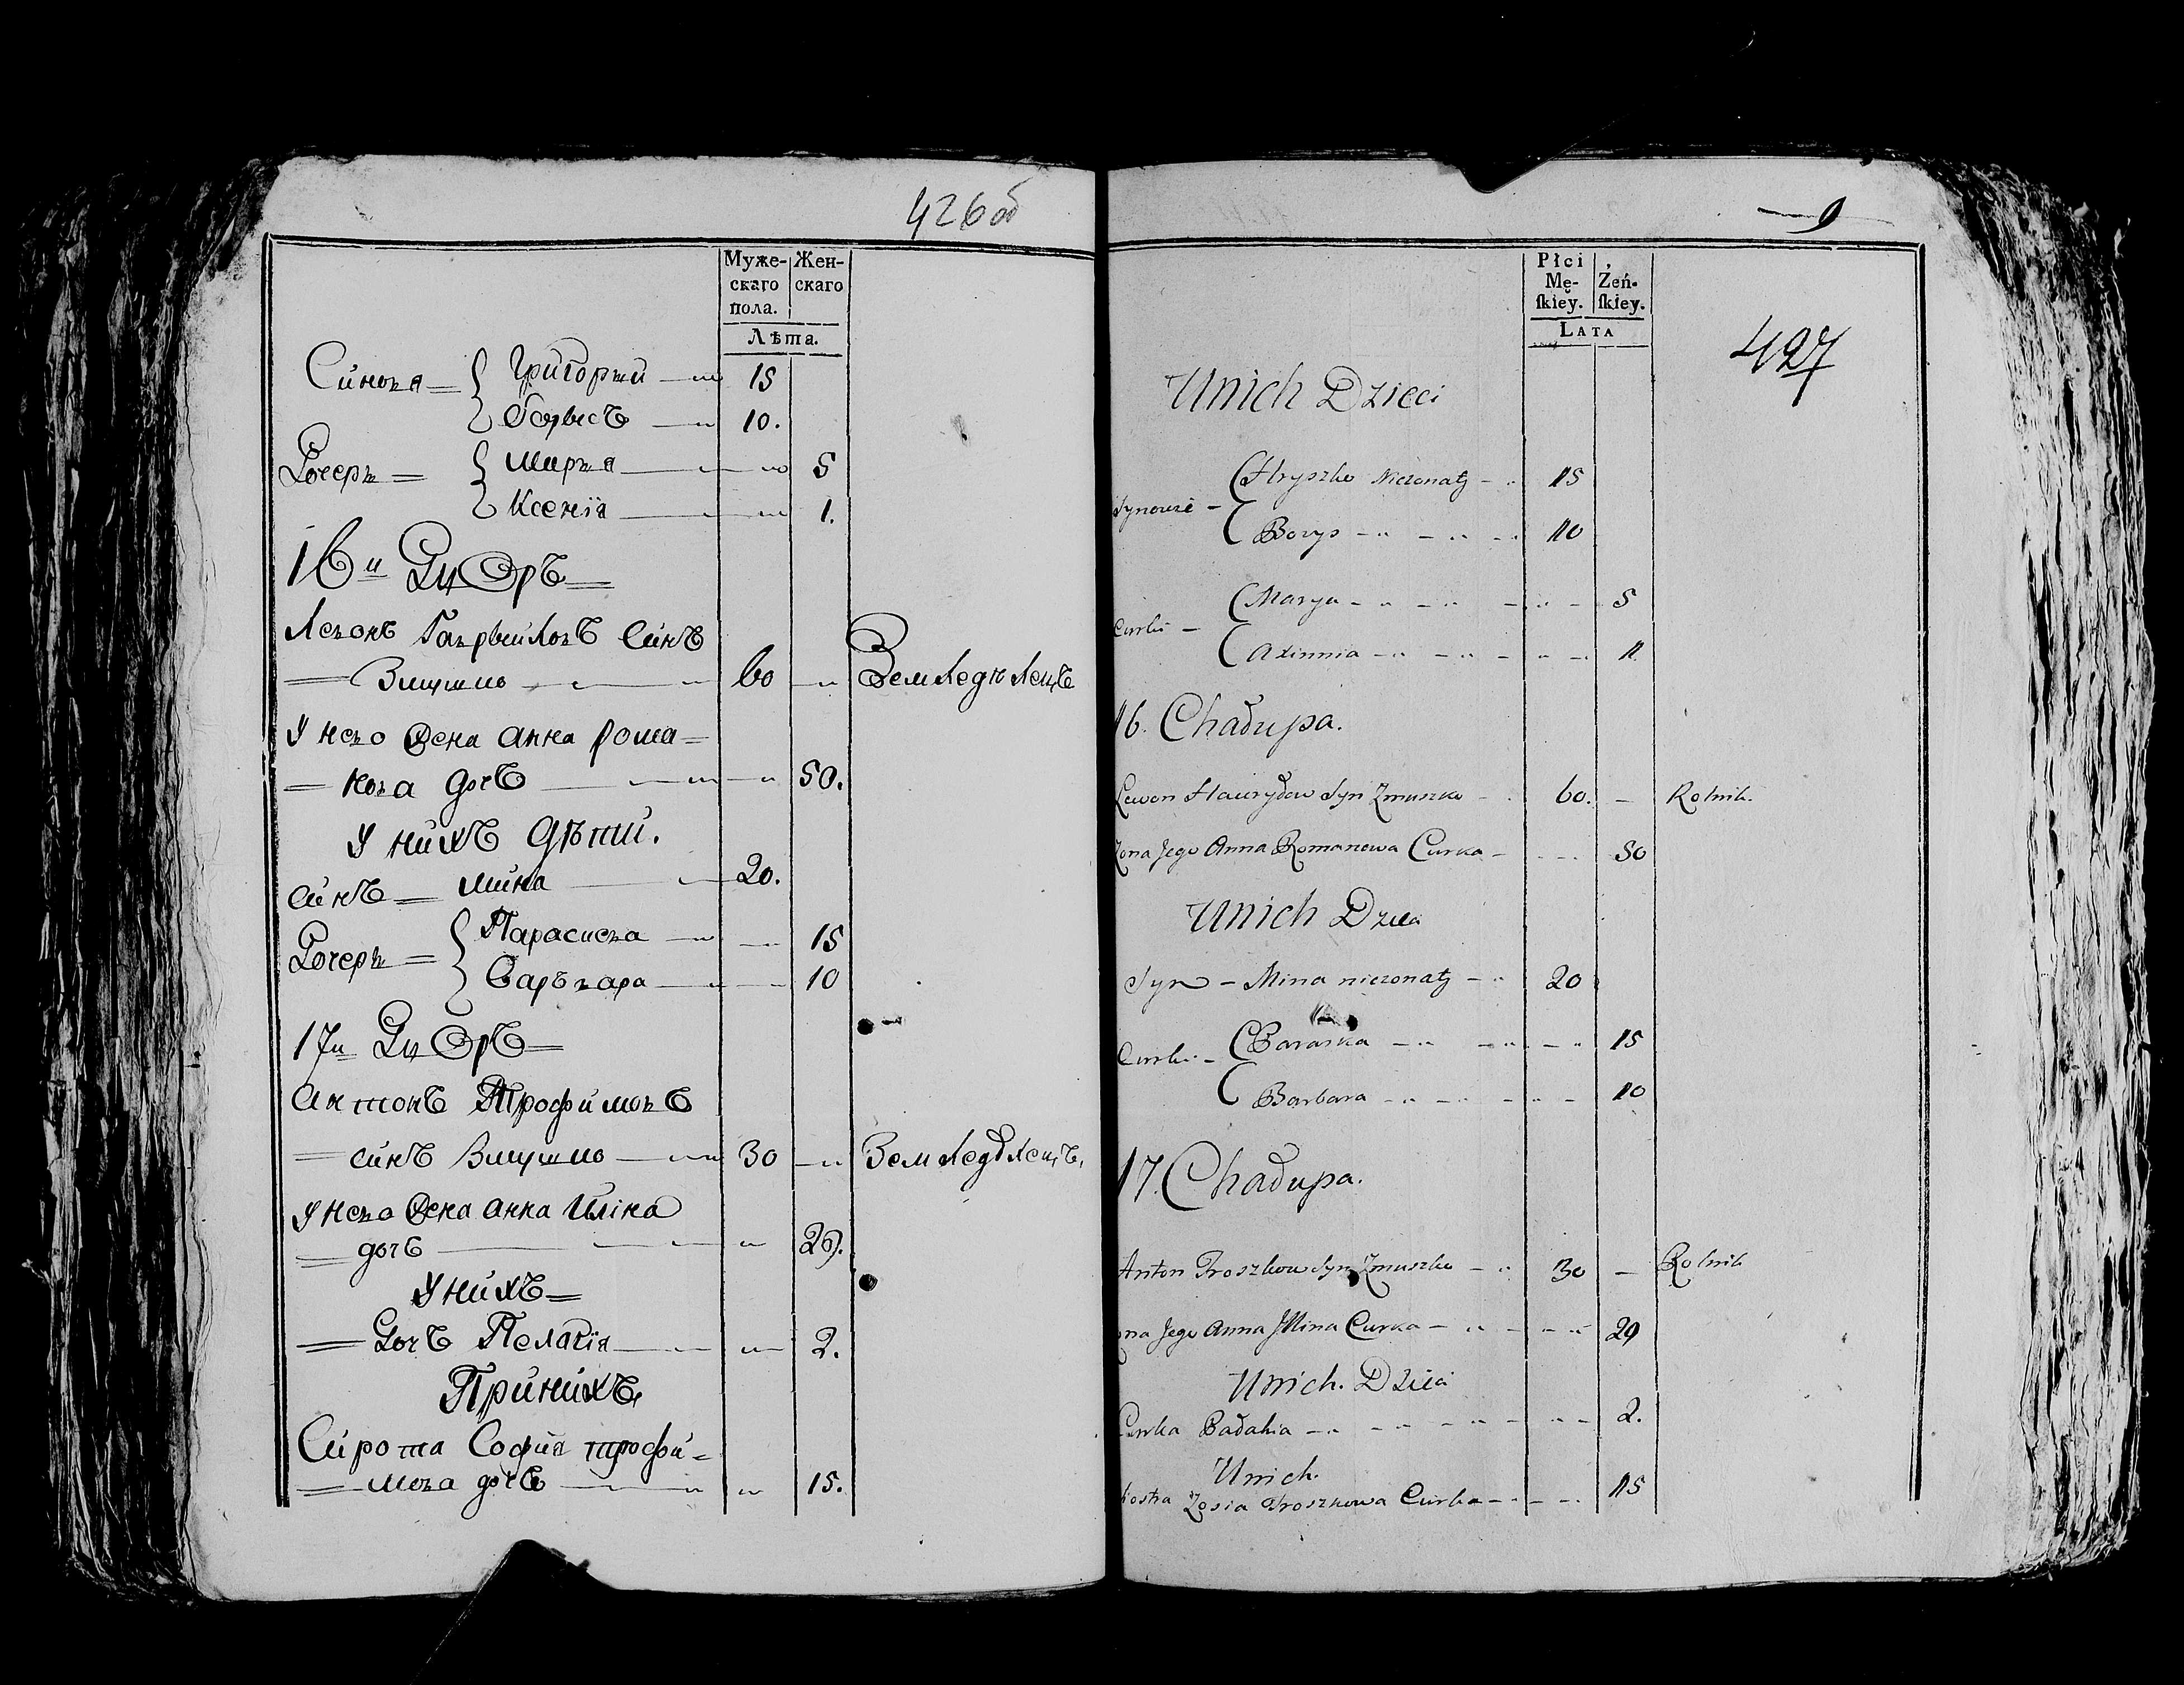 426 об
Муже-
скаго
пола.
Жен-
скаго
Лѣта.
Синовя = Григорий 15
Борисъ 10.
Дочери = Маря 5
Ксенія 1.
16й Дворъ =
Левонъ Гаврыиловъ синъ
= Змушко 60 Земледѣлецъ
У него жена Анна рома=
= нова дочъ 50.
У нихъ дѣти.
синъ = Мина 20.
Дочери = Парасиева 15
Варъвара 10
17й Дворъ =
Антонъ Трофимовъ
= синъ Змушко 30 Земледѣлецъ,
У него жена Анна Иліна
= дочъ 29.
У нихъ =
= Дочъ Пелагія 2.
При нихъ,
Сирота София трофи=
= мова дочъ 15.
9
Płci
Mę-
ſkiey.
Żeń-
ſkiey.
LATA
427
Unich Dzieci
Synowie - Hryszko Niezonaty 15
Borys 10
Curki - Marya 5
Axinnia 1
16. Chałupa.
Lewon Hawryłow Syn Zmuszko 60. - Rolnik.
Zona Jego Anna Romanowa Curka - 50
Unich Dzieci
Syn - Mina niezonaty 20
Curki - Paraska 15
Barbara 10
17. Chałupa.
Anton Troszkow Syn Zmuszko 30 - Rolnik
ona Jego Anna Jllina Curka 29
Unich. Dzieci
Curka Pałahia 2.
Unich.
iostra Zosia Troszkowa Curka 15